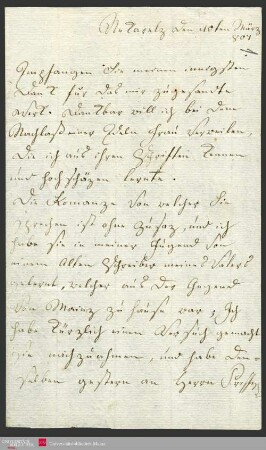 den 10ten März
Empfangen Sie meinen innigsten
Dank für das mir zugesandte
Werk. Dankbar will ich bei dem
Nachlasse einer Edeln Frau verweilen,
die ich aus ihren Schriften kennen
und hochschäzen lernte.
Die Romanze von welcher Sie
sprechen ist ohne Zusaz, und ich
habe sie in meiner Jugend von
einem Alten Schreiber meines Vaters
gelernt, welcher aus der Gegend
von Mainz zu Hause war; Ich
habe kürzlich einen Versuch gemacht
sie nachzuahmen, und habe den-
selben gestern an Herrn